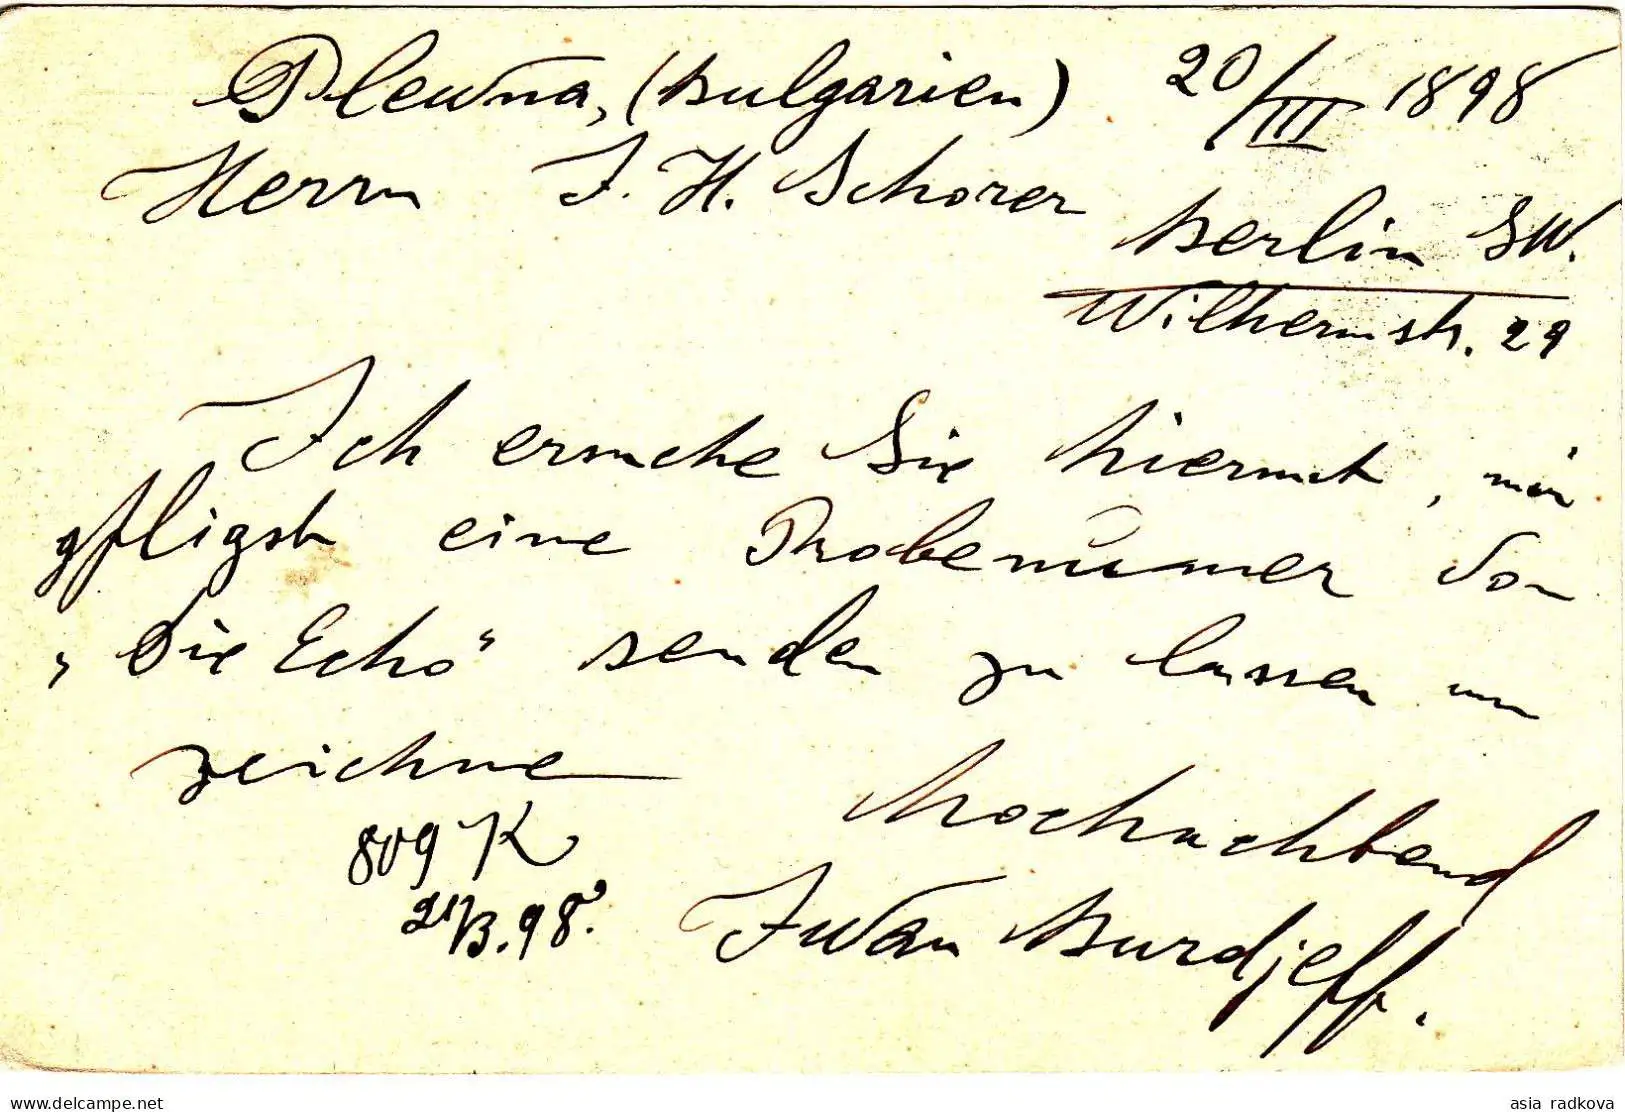 Plewna, (Bulgarien) 20/III 1898
Herrn J. H. Schorer
Berlin SW.
Wilhelmstr. 29
Ich ersuche Sie hiermit, mir
gfligst eine Probenumer von
„Die Echo" senden zu lassen un
zeichne
Hochachtend
Iwan Burdjeff.
809 K
21/3.98.
www.delcampe.net
asia radkova